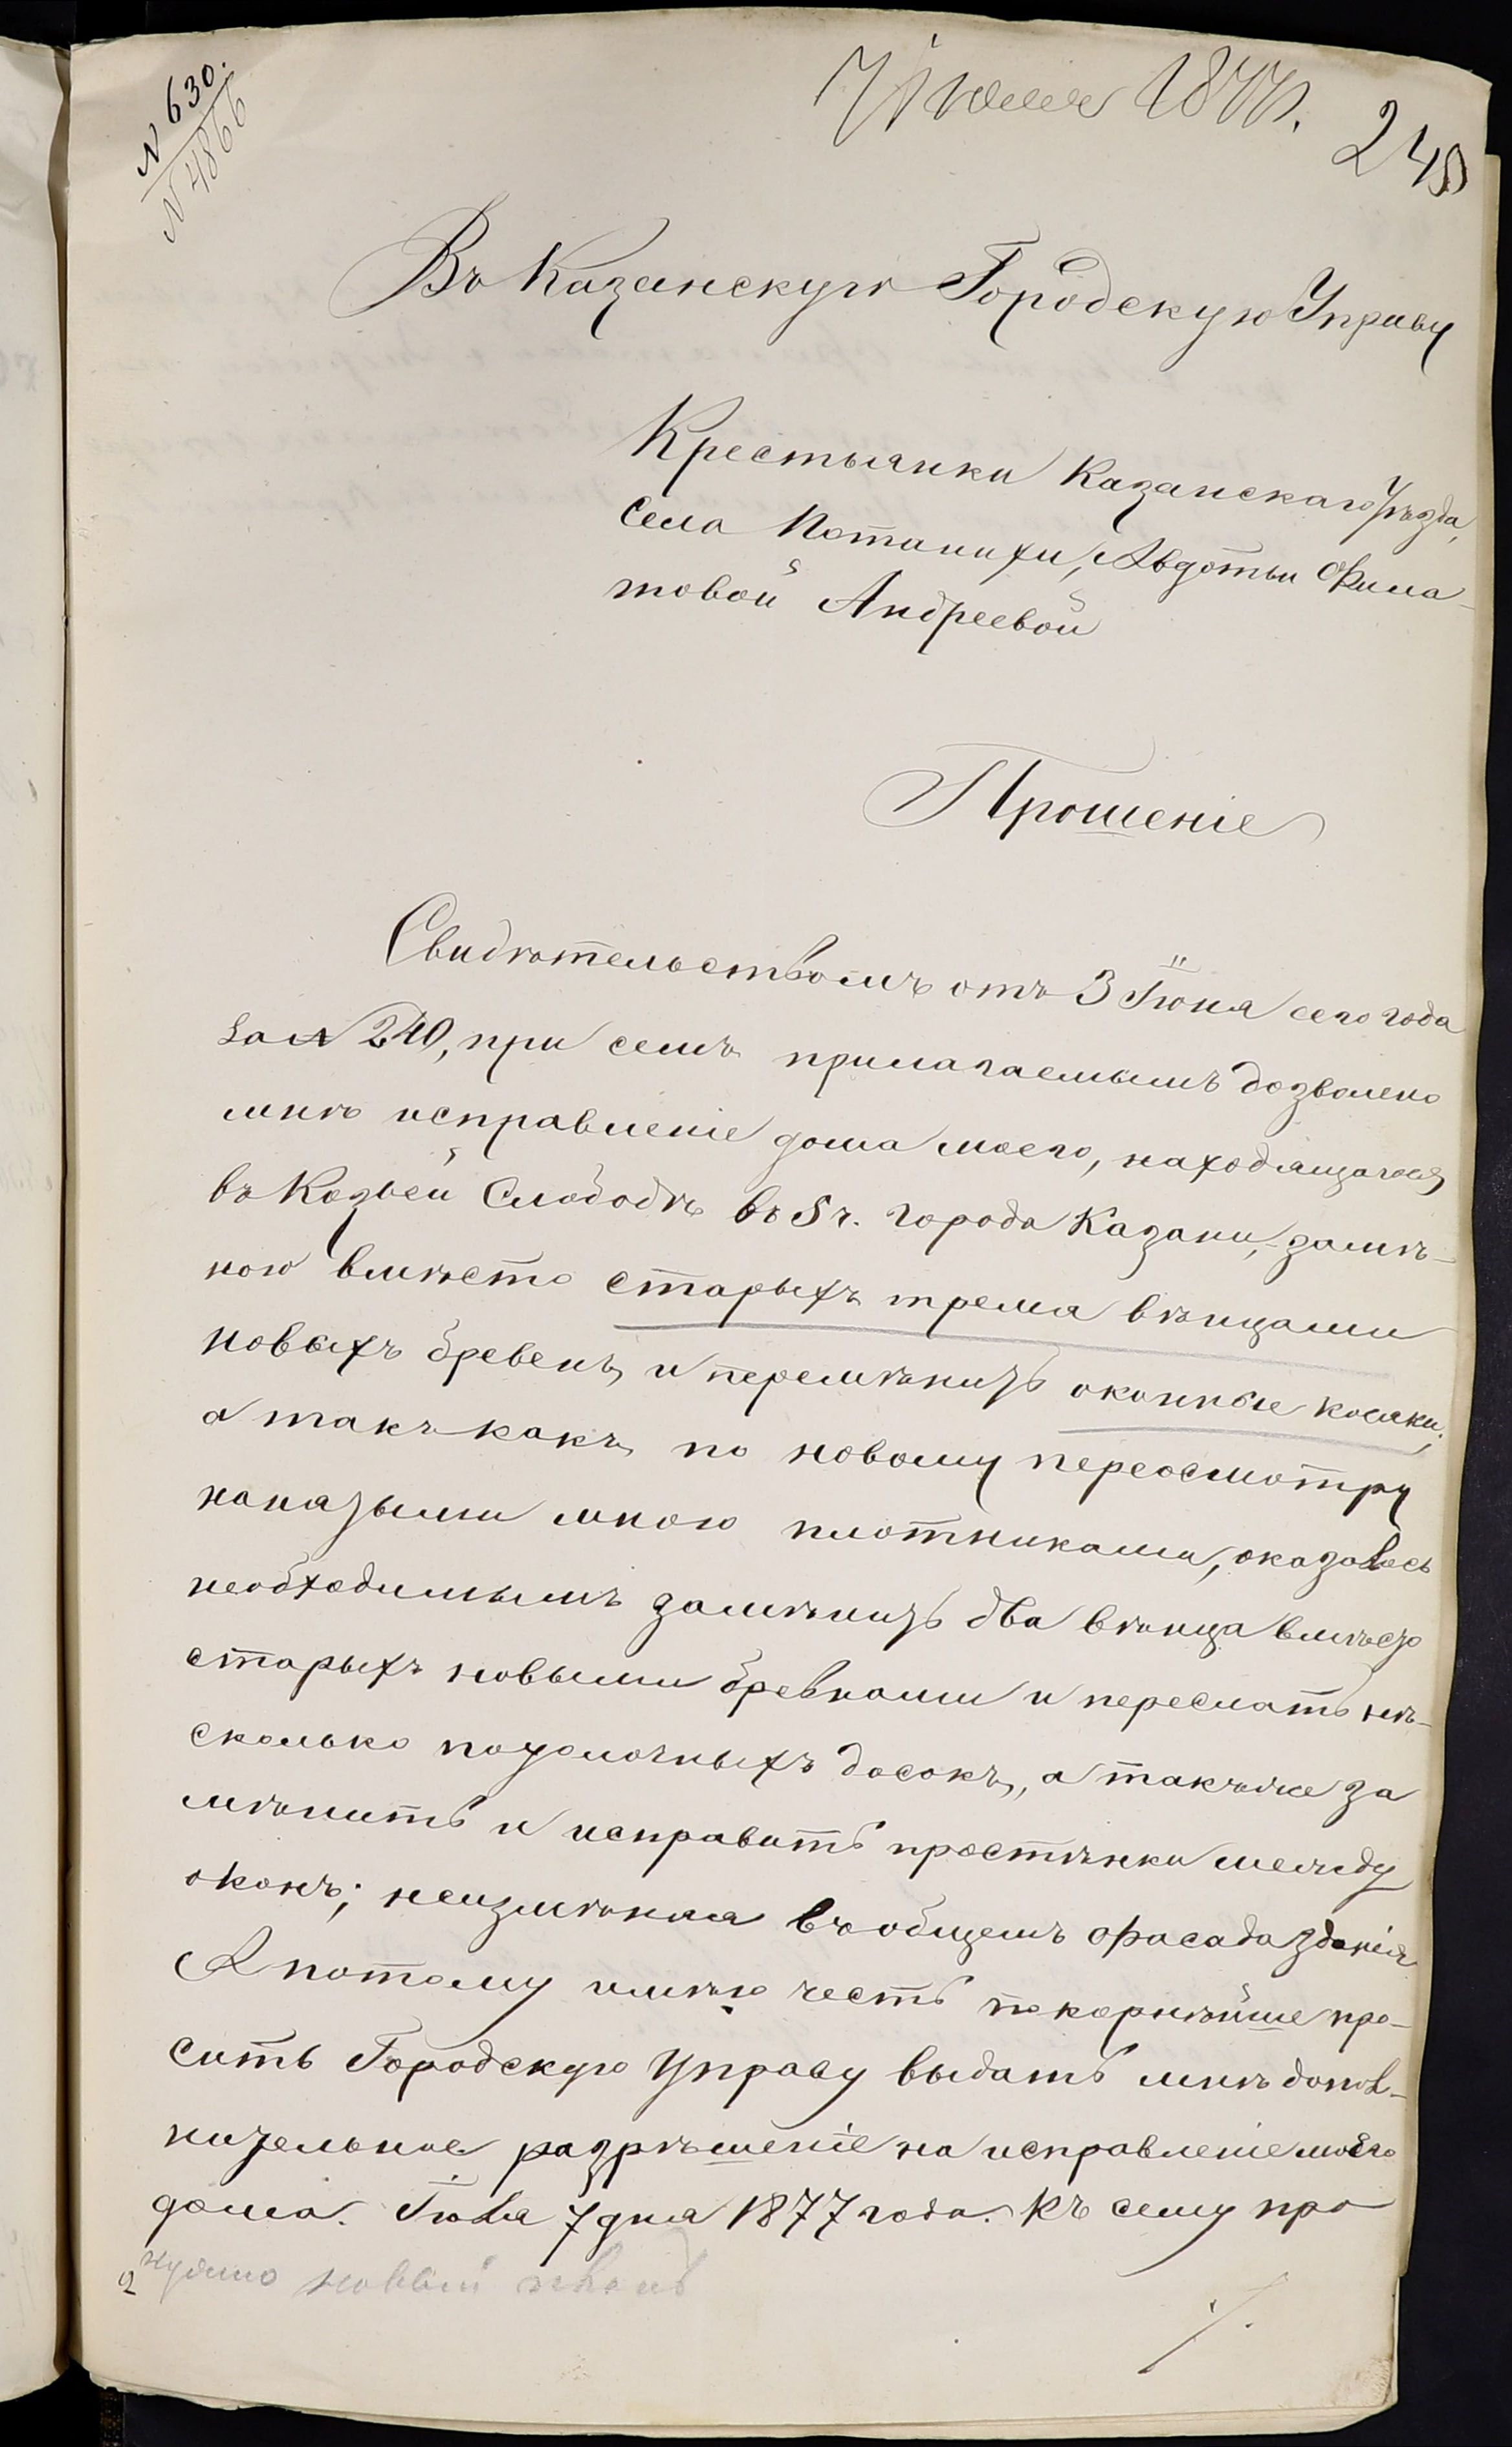 7 Июля 1877.
248
N 630.
N 4866
Въ Казанскую Городскую Управу
Крестьянки Казанскаго Уѣзда,
села Потанихи, Авдотьи Фила-
товой Андреевой
Прошеніе
Свидѣтельствомъ отъ 3 Іюня сего года
за N 240, при семъ прилагаемымъ дозволено
мнѣ исправленіе дома моего, находящагося
въ Козьей Слободѣ въ 5 ч. города Казани, замѣ-
ною вмѣсто старыхъ тремя вѣнцами
новыхъ бревенъ, и перемѣнить оконные косяки,
а такъ какъ, по новому переосмотру
нанятыми мною плотниками, оказалось
необходимымъ замѣнить два вѣнца вмѣсто
старыхъ новыми бревнами и переслать нѣ-
сколько потолочныхъ досокъ, а такъже за
мѣнить и исправить простѣнки между
оконъ; неизмѣняя въ общемъ фасада зданія
А потому имѣю честь покорнѣйше про-
сить Городскую Управу выдать мнѣ допол-
нительное разрѣшеніе на исправленіе моего
дома. Іюля 7 дня 1877 года. Къ сему про
нужно новый планъ